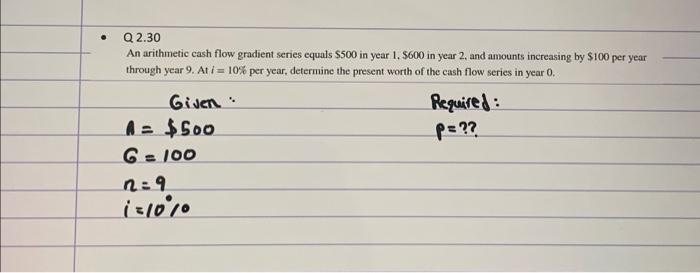 • Q 2.30
An arithmetic cash flow gradient series equals $500 in year 1, $600 in year 2, and amounts increasing by $100 per year
through year 9. At i = 10% per year, determine the present worth of the cash flow series in year 0.
Given :
Required :
A = $500
P = ??
G = 100
n = 9
i = 10%